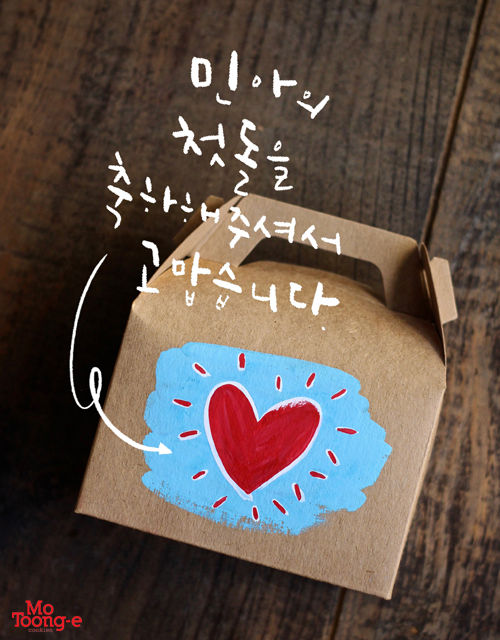 민아의
첫돌을
축하해주셔서
고맙습니다.
Mo
Toong-e
cookies